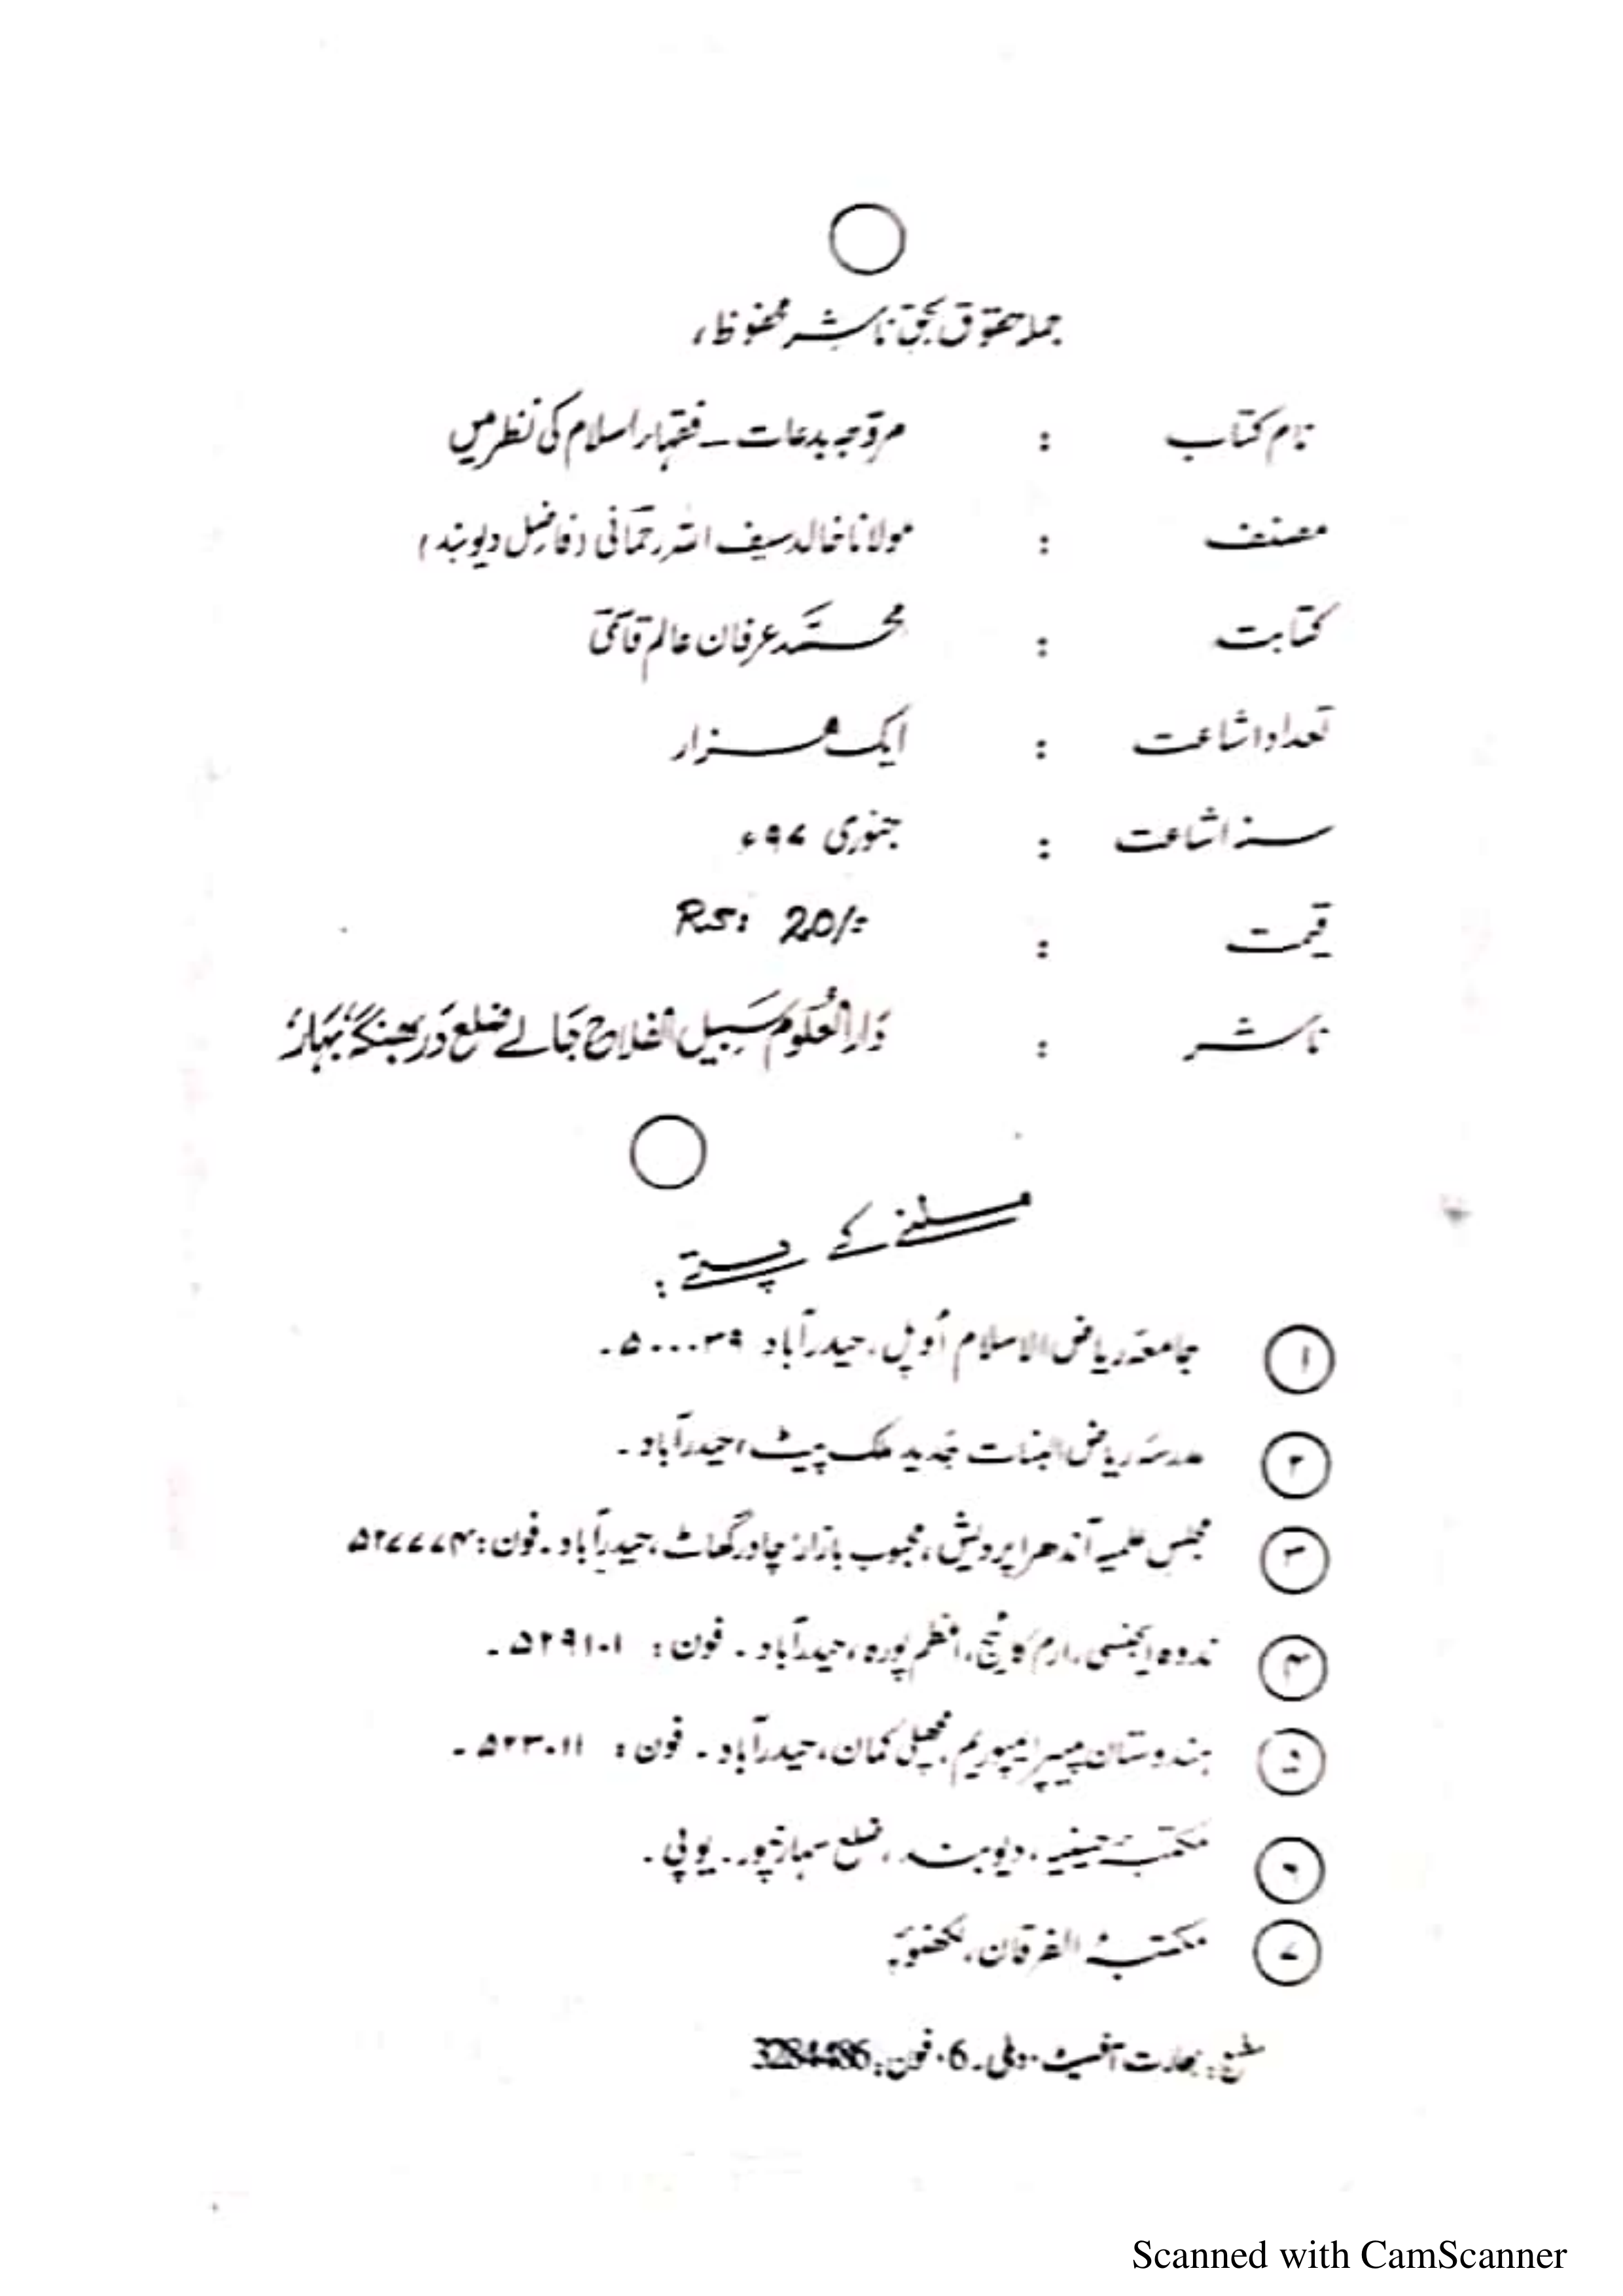 جملہ حقوق بحق ناشر محفوظ،
نام کتاب : مروّجہ بدعات ـ فقہاء اسلام کی نظر میں
مصنف : مولانا خالد سیف اللہ رحمانی (فاضل دیوبند)
کتابت : محمد عرفان عالم قاسمی
تعداد اشاعت : ایک ہزار
سنہ اشاعت : جنوری ۹۷ء
قیمت : Rs: 20/=
ناشر : دارالعلوم سبیل الفلاح جالے ضلع دربھنگہ، بہار
ملنے کے پتے :
۱ جامعہ ریاض الاسلام اُوپل، حیدرآباد ۵۰۰۰۳۹۔
۲ مدرسہ ریاض البنات جدید ملک پیٹ، حیدرآباد۔
۳ مجلس علمیہ آندھرا پردیش، محبوب بازار چادر گھاٹ، حیدرآباد۔ فون: ۵۲۷۷۷۴
۴ ندوہ ایجنسی، ارم کاٹیج، اعظم پورہ، حیدرآباد۔ فون: ۵۲۹۱۰۱۔
۵ ہندوستان پیپر ایمپوریم، مچھلی کمان، حیدرآباد۔ فون: ۵۲۳۰۱۱۔
۶ مکتبہ، دیوبند، ضلع سہارنپور۔ یوپی۔
۷ مکتبہ الفرقان، لکھنؤ
مطبع: بھارت آفسیٹ دہلی۔6۔ فون: 3284486
Scanned with CamScanner